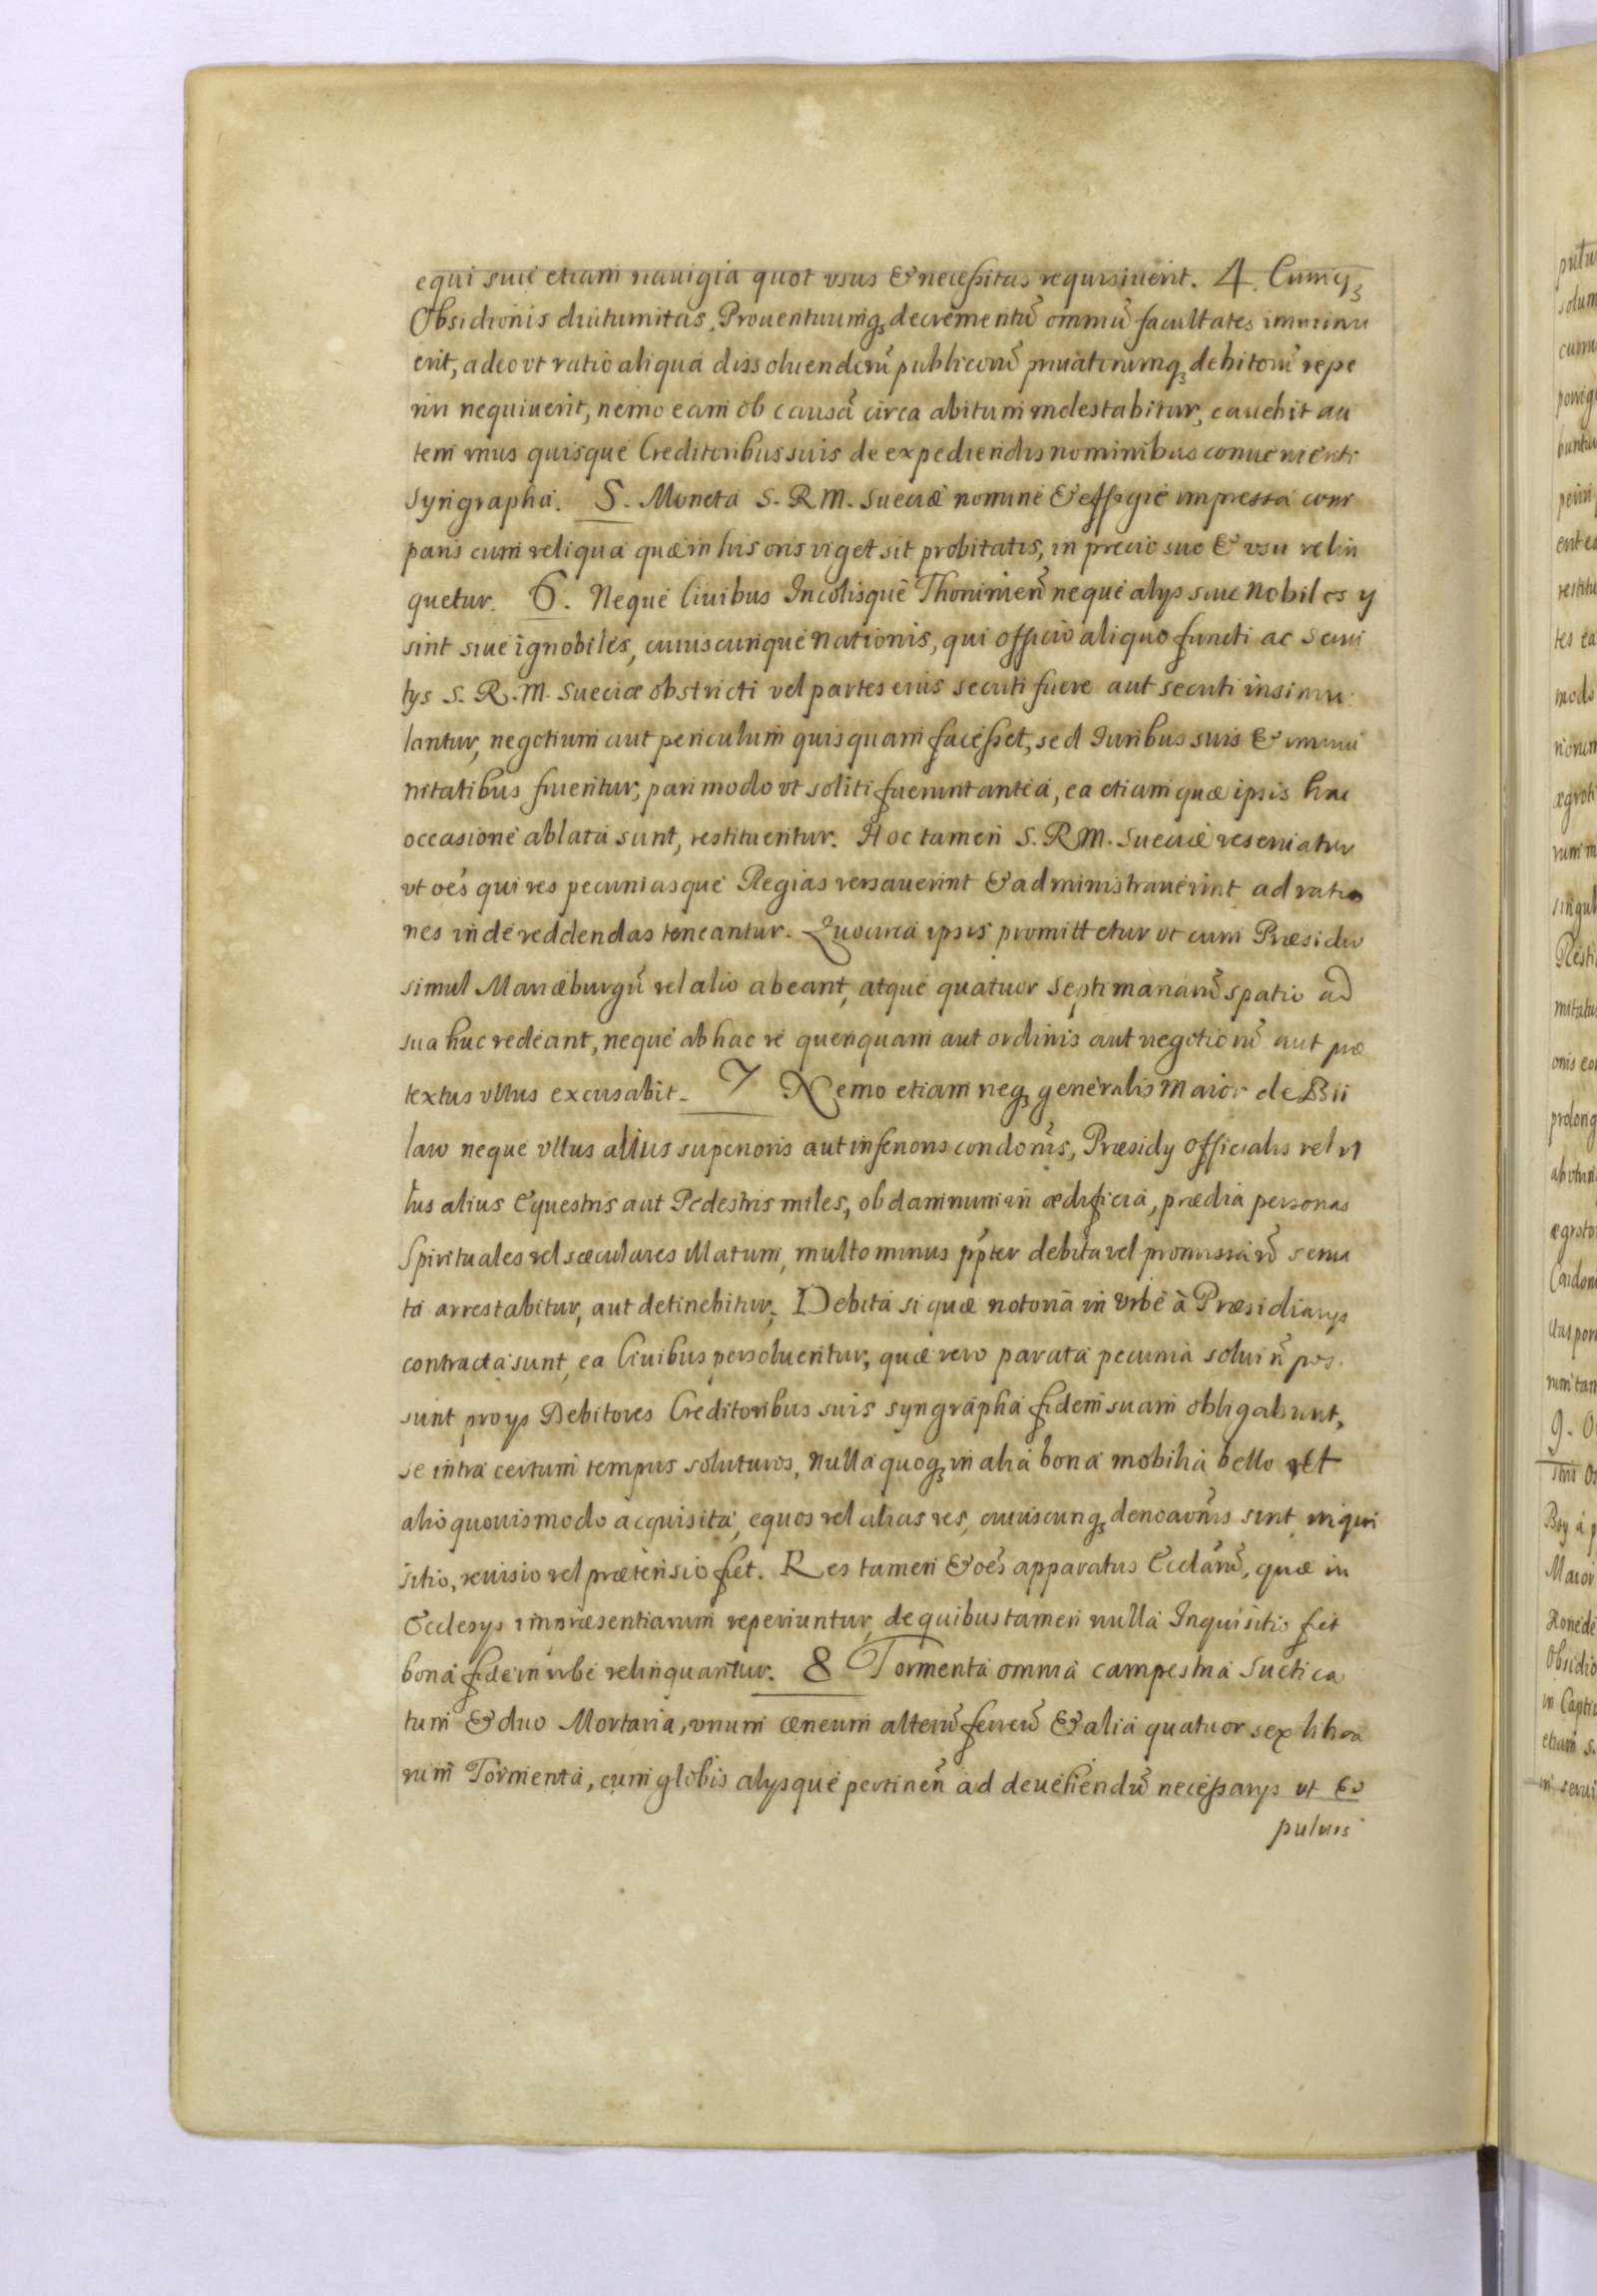 equi siue etiam nauigia quot vsus & necessitas requisiuerit. 4. Cumq3
Obsidionis diuturnitas, Prouentuumq3 decrementũ omniũ facultates imminu
erit, adeo vt ratio aliqua dissoluendorũ publicorũ priuatorumq3 debitorũ repe
riri nequiuerit, nemo eam ob causã circa abitum molestabitur, cauebit au
tem vnus quisque Creditoribus suis de expediendis nominibus conuenienti
syngrapha. 5. Moneta S. R. M. Sueciæ nomine & effigie impressa com
paris cum reliqua quæ in his oris viget sit probitatis, in precio suo & vsu relin
quetur. 6. Neque Ciuibus Incolisque Thoruniẽn neque alys siue Nobiles y
sint siue ignobiles, cuiuscunque nationis, qui officio aliquo functi ac serui
tys S. R. M. Sueciæ obstricti vel partes eius secuti fuere aut secuti insimu
lantur, negotium aut periculum quisquam facesset, sed Iuribus suis & immu
nitatibus fruentur, pari modo vt soliti fuerunt antea, ea etiam quæ ipsis hac
occasione ablata sunt, restituentur. Hoc tamen S. R. M. Sueciæ reseruatur
vt oẽs qui res pecuniasque Regias versauerint & administrauerint ad ratio
nes inde reddendas teneantur. Quocirca ipsis promittetur vt cum Præsidio
simul Mariæburgũ vel alio abeant, atque quatuor septimanarũ spatio ad
sua huc redeant, neque ab hac re quenquam aut ordinis aut negotiorũ aut præ
textus vllus excusabit. 7 Nemo etiam neq3 generalis Maior de Bii
law neque vllus alius superioris aut inferioris condonĩs, Præsidy Officialis vel vl
lus alius Equestris aut Pedestris miles, ob damnum in ædificia, prædia personas
Spirituales vel sæculares illatum, multo minus ꝓpter debita vel promissa nõ serua
ta arrestabitur, aut detinebitur, Debita si quæ notoria in Vrbe à Præsidiarys
contracta sunt, ea Ciuibus persoluentur, quæ vero parata pecunia solui ñ pos
sunt pro ys Debitores Creditoribus suis syngrapha fidem suam obligabunt,
se intra certum tempus soluturos, Nulla quoq3 in alia bona mobilia bello vel
alio quouismodo acquisita, equos vel alias res, cuiuscunq3 denoãnis sint inqui
sitio, reuisio vel prætensio fiet. Res tamen & oẽs apparatus Ecclãrũ, quæ in
Ecclesys impræsentiarum reperiuntur, de quibus tamen nulla Inquisitio fiet
bona fide in vrbe relinquantur. 8 Tormenta omnia campestria Suetica
tum & duo Mortaria, vnum æneum alterũ ferreũ & alia quatuor sex libra
rum Tormenta, cum globis alysque pertinẽn ad deuehendũ necessarys vt &
puluis